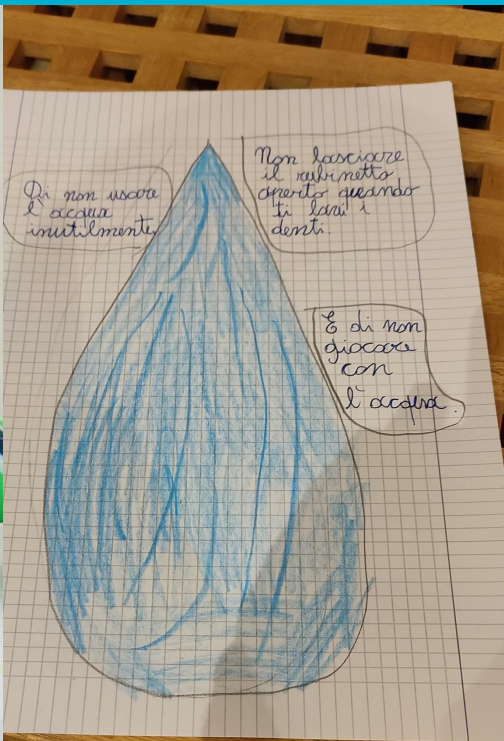 Di non usare
l'acqua
inutilmente.
Non lasciare
il rubinetto
aperto quando
ti lavi i
denti.
E di non
giocare
con
l'acqua.